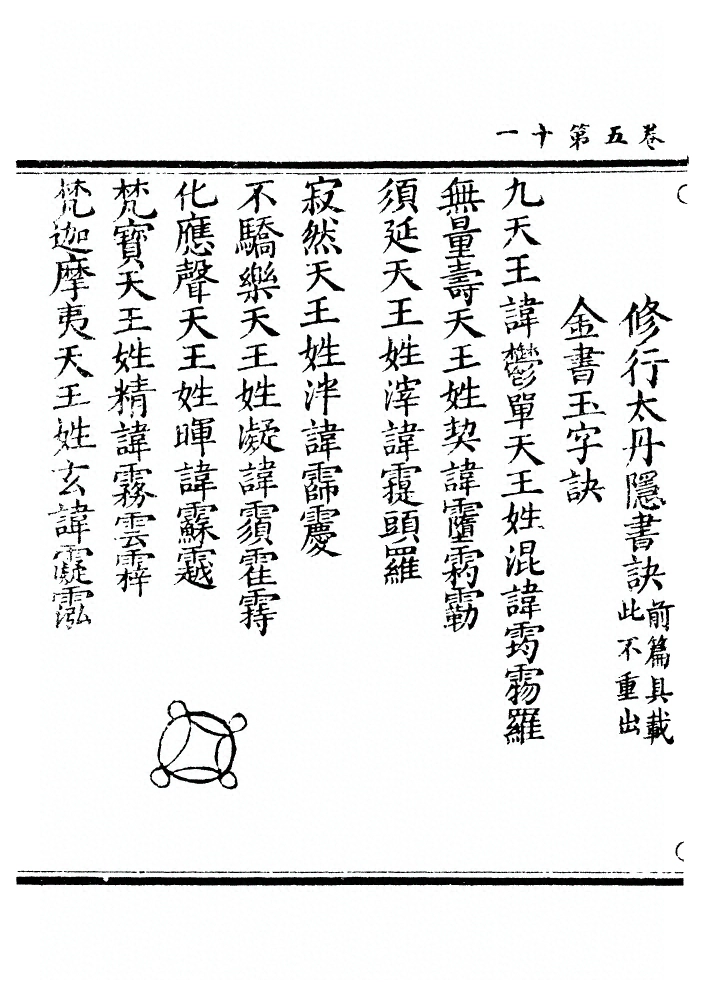 卷五第十一
修行太丹隱書訣前篇具載此不重出
金書玉字訣
九天王諱鬱單天王姓混諱霒霧羅
無量壽天王姓契諱勒
須延天王姓滓諱霆頭羅
寂然天王姓泮諱
不驕樂天王姓凝諱
化應聲天王姓暉諱
梵寶天王姓精諱霧雲
梵迦摩夷天王姓玄諱